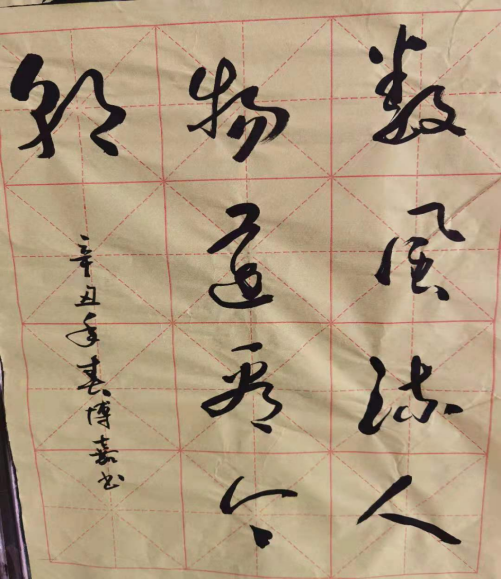 数风流人
物还看今
朝
辛丑年春博嘉书